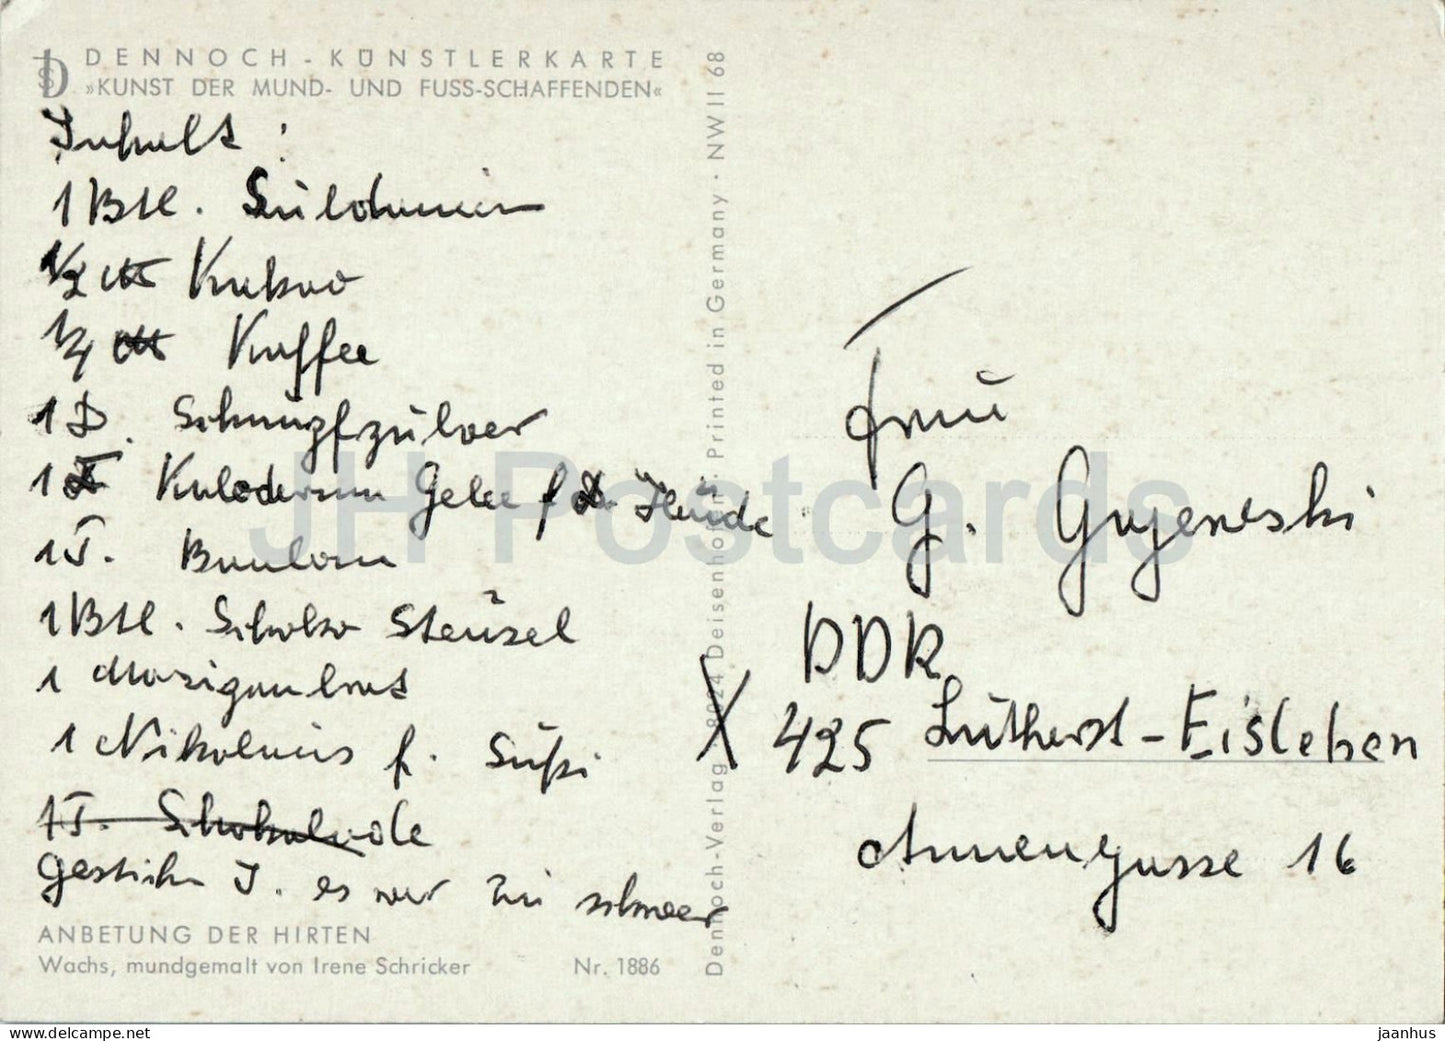 DENNOCH-KÜNSTLERKARTE
»KUNST DER MUND- UND FUSS-SCHAFFENDEN«
Inhalt :
1 Btl.
1/2 Kakao
1/4 Kaffee
1 D.
1 Kaloderma Gelee f.
1 T.
1 Btl. Schoko Steusel
1
1 Nikolaus f. Sußi
1 T. Schokolade
J. es war zu schwer
ANBETUNG DER HIRTEN
Wachs, mundgemalt von Irene Schricker Nr. 1886
Dennoch-Verlag 8024 Deisenhofen · Printed in Germany · NW II 68
Frau
G.
DDR
X 425 Lutherst-Eisleben
Annengasse 16
JH Postcards
www.delcampe.net
jaanhus